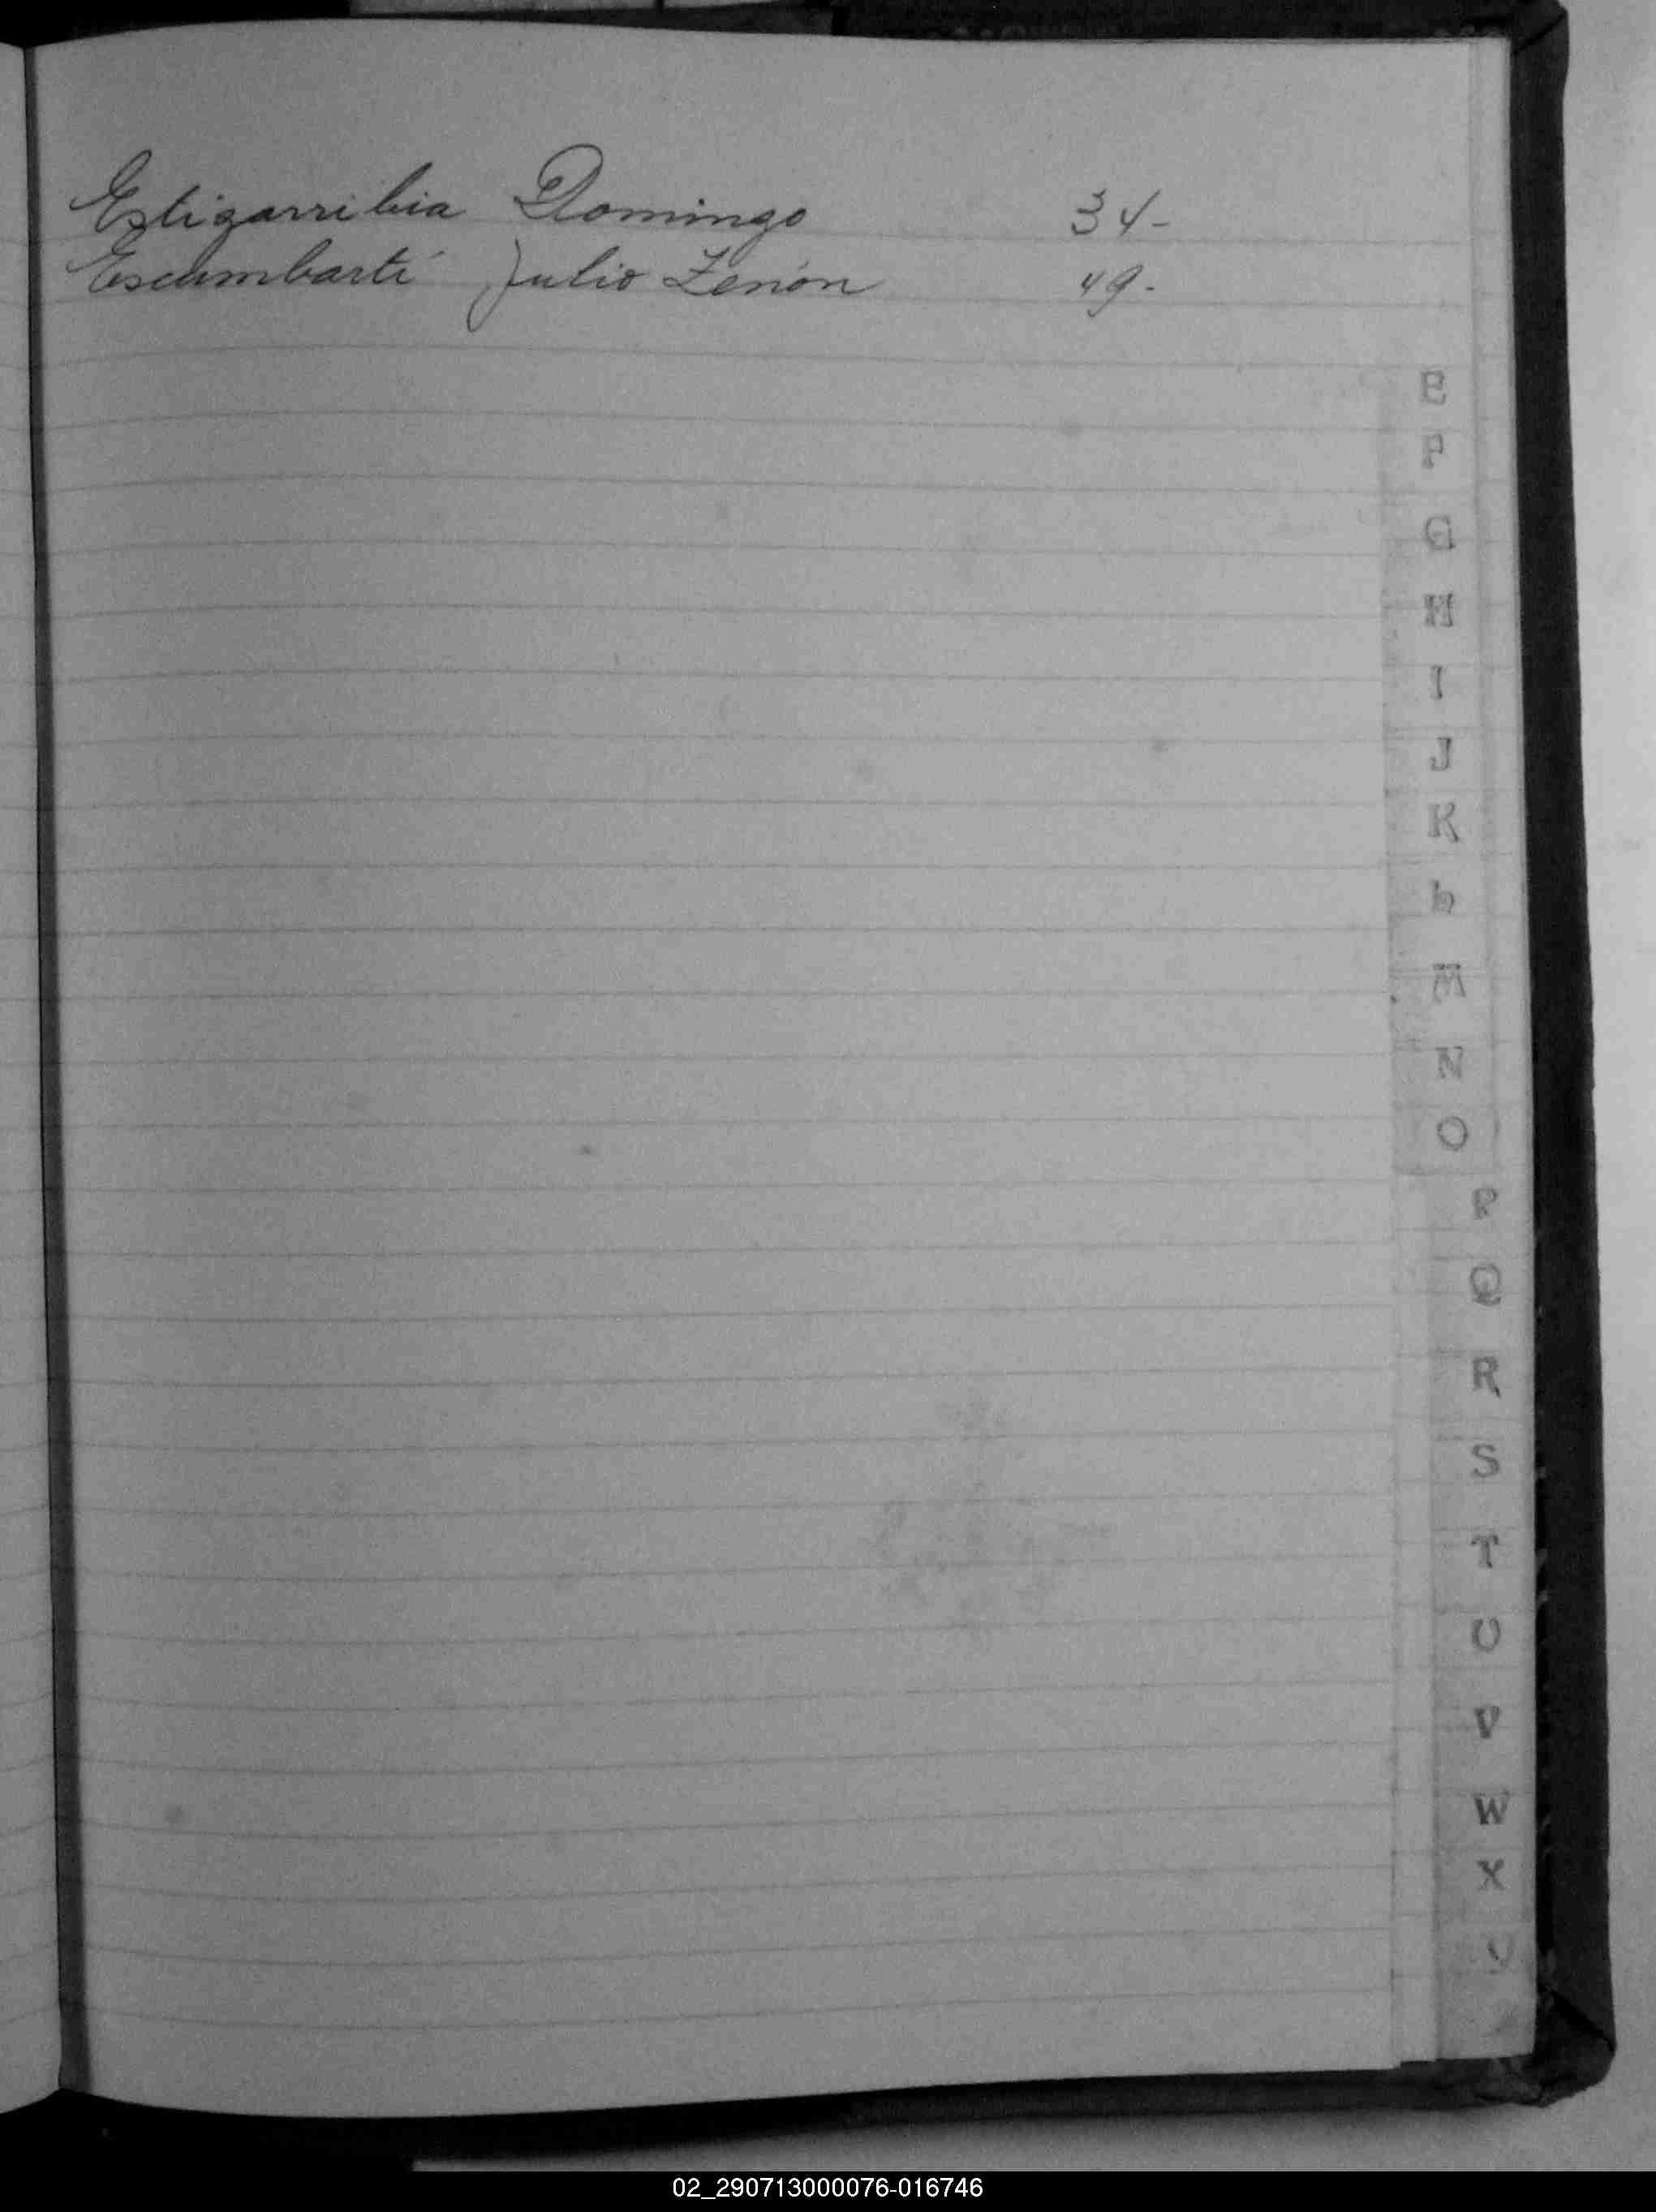 Estigarribia Domingo 34-
Escumbarti Julio Zenón 49-
E
F
G
H
I
J
K
L
M
N
O
P
Q
R
S
T
U
V
W
X
Y
02_290713000076-016746